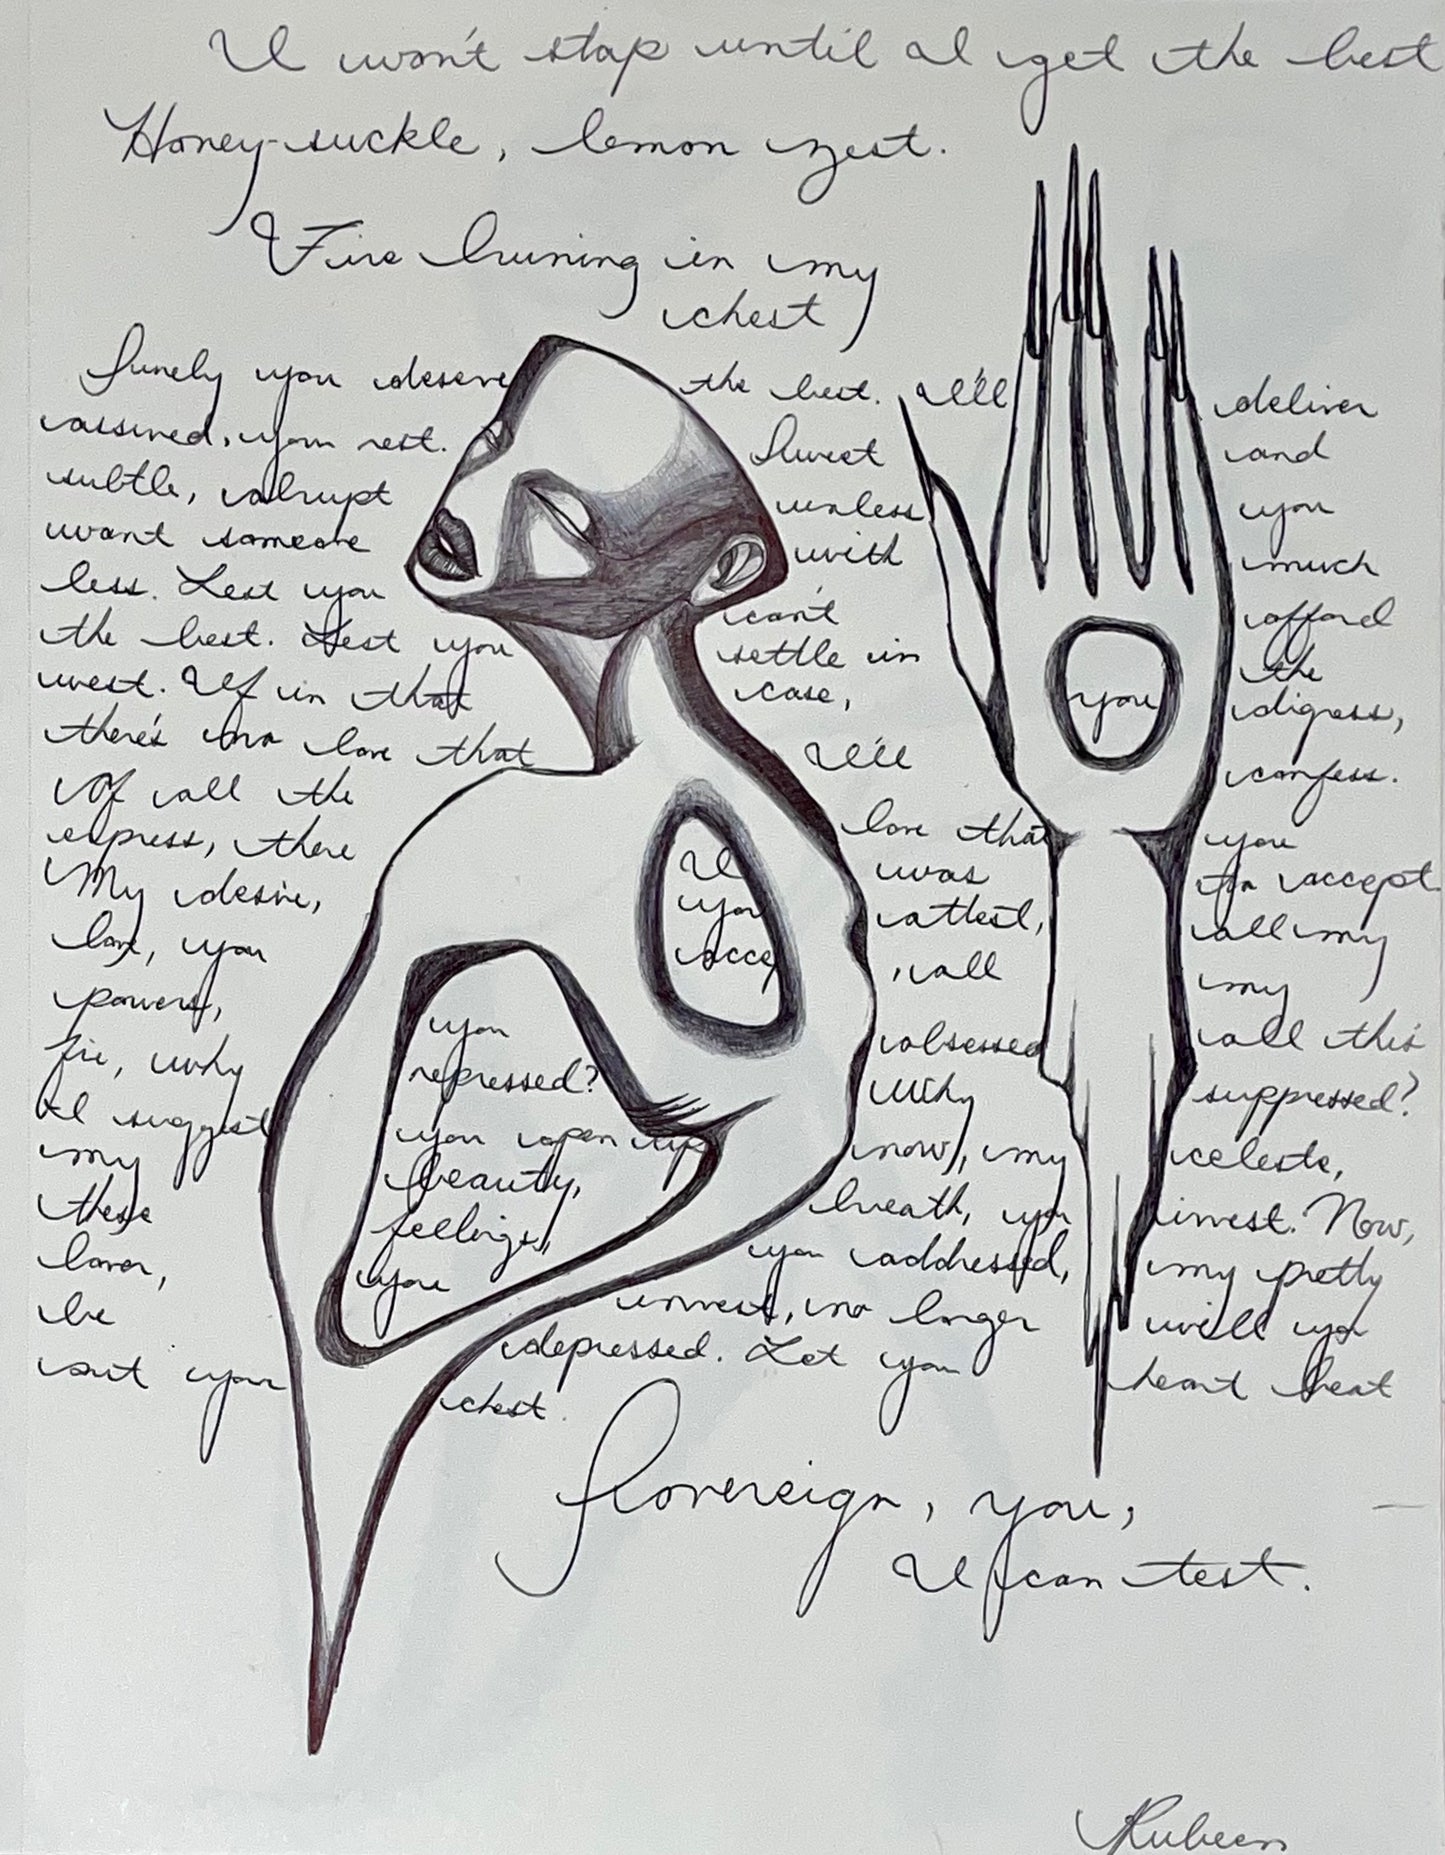 I won't stop until I get the best
Honey-suckle, lemon zest.
Fire burning in my
chest
Surely you deserve the best. I'll deliver
assured, your rest. Sweet and
subtle, abrupt unless you
want someone with much
less. Lest you can't afford
the best. Lest you settle in the
west. If in that case, you digress,
there's no love that I'll confess.
Of all the love that you
express, there I was to accept.
My desire, you attest, all my
love, you acce , all my
powers, you obsessed all this
fire, why repressed? Why suppressed?
I suggest you open up now, my celeste,
my beauty, breath, you invest. Now,
these feelings, you addressed, my pretty
lover, you invest, no longer will you
be depressed. Let your heart beat
out your chest.
Sovereign, you,
I can test.
Rubeen